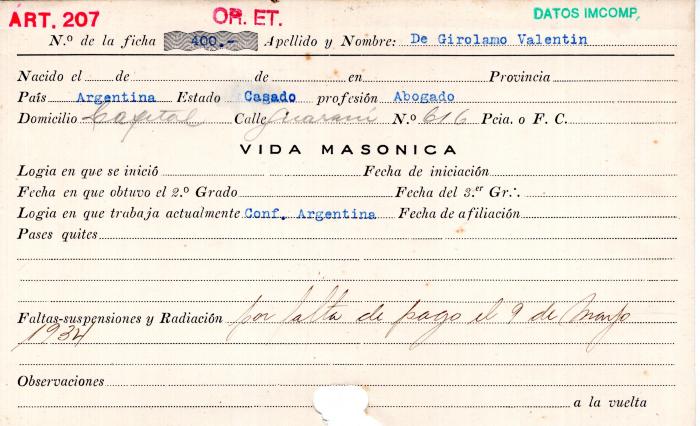 ART. 207
OR. ET.
DATOS IMCOMP.
N.º de la ficha 400.- Apellido y Nombre: De Girolamo Valentin
Nacido el de de en Provincia
País Argentina Estado Casado profesión Abogado
Domicilio Capital Calle Guarani N.º 616 Pcia. o F. C.
VIDA MASONICA
Logia en que se inició Fecha de iniciación
Fecha en que obtuvo el 2.º Grado Fecha del 3.er Gr∴
Logia en que trabaja actualmente Conf. Argentina Fecha de afiliación
Pases quites
Faltas-suspensiones y Radiación por falta de pago el 9 de Mayo
1934
Observaciones
a la vuelta